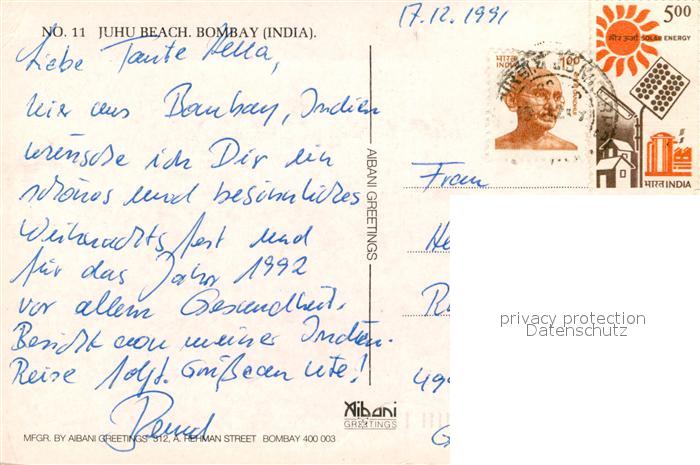 17.12.1991
NO. 11 JUHU BEACH. BOMBAY (INDIA).
Liebe Tante Hella,
hier aus Bombay, Indien
wünsche ich Dir ein
schönes und besinnliches
Weihnachtsfest und
für das Jahr 1992
vor allem Gesundheit.
Bericht von meiner Indien-
Reise folgt. Grüße an Ute!
Bernd
AIBANI GREETINGS
Aibani
GREETINGS
MFGR. BY AIBANI GREETINGS 312, A. REHMAN STREET BOMBAY 400 003
भारत
INDIA
1.00
5.00
सौर ऊर्जा SOLAR ENERGY
भारत INDIA
Frau
He
R
499
G
privacy protection
Datenschutz